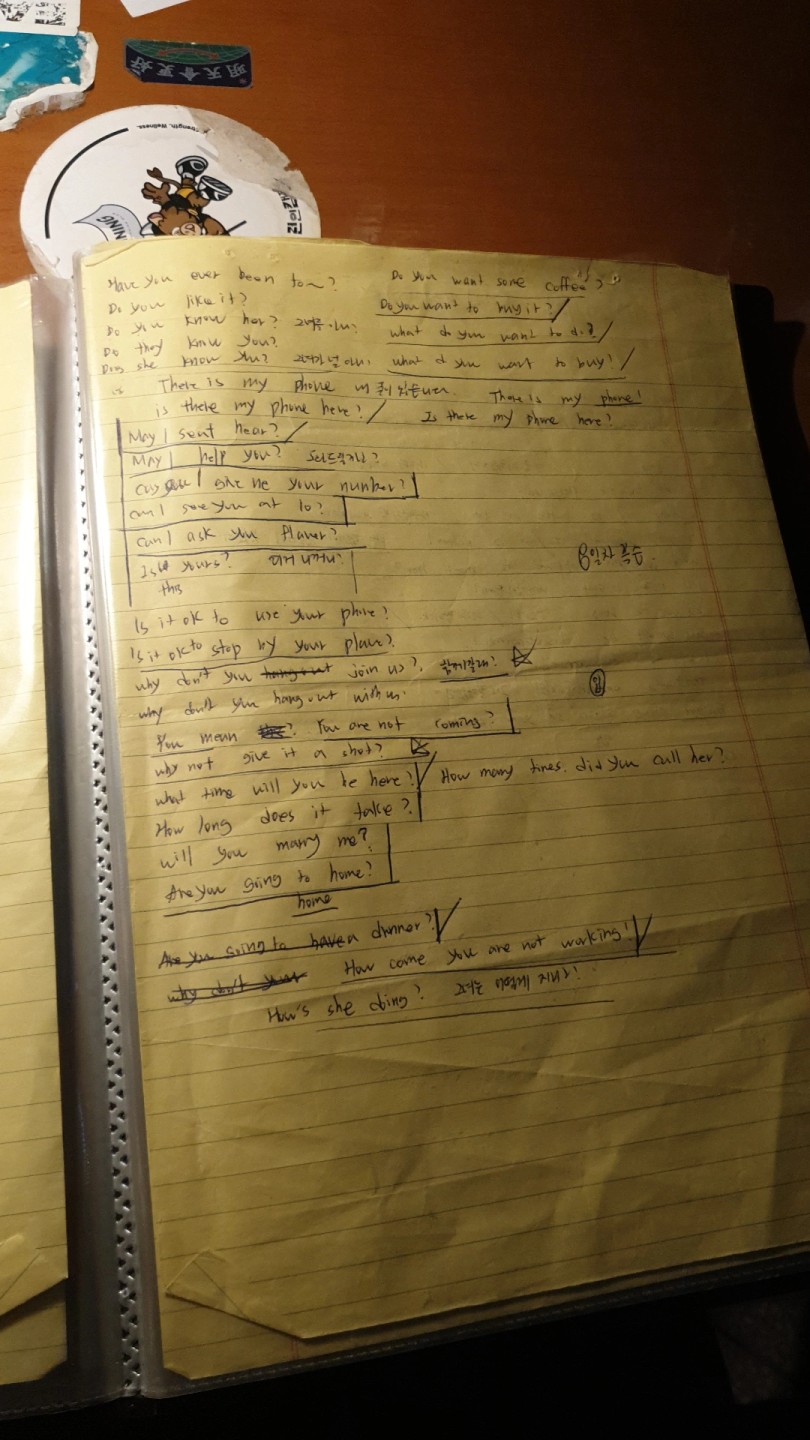 明天會更好
Strength. Wellness.
NING
Have you ever been to~? Do you want some coffee?
Do you like it? Do you want to buy it?
Do you know her? what do you want to do?
Do they know you?
Does she know you? what do you want to buy?
is There is my phone There is my phone!
is there my phone here? Is there my phone here?
May I seat hear?
May I help you? 도와드릴까요?
give me your number?
can I see you at 10?
can I ask you flaver?
Is yours? 이거 니꺼니?
this
8일차 복습.
Is it ok to use your phone?
Is it ok to stop by your place?
why don't you hangout join us? 함께할래?
why don't you hangout with us.
You mean ? You are not coming?
why not give it a shot?
what time will you be here? How many times. did you call her?
How long does it take?
will you marry me?
Are you going to home?
home
Are you going to have a dinner?
why don't your How come you are not working!
How's she doing? 그녀는 어떻게 지내니?